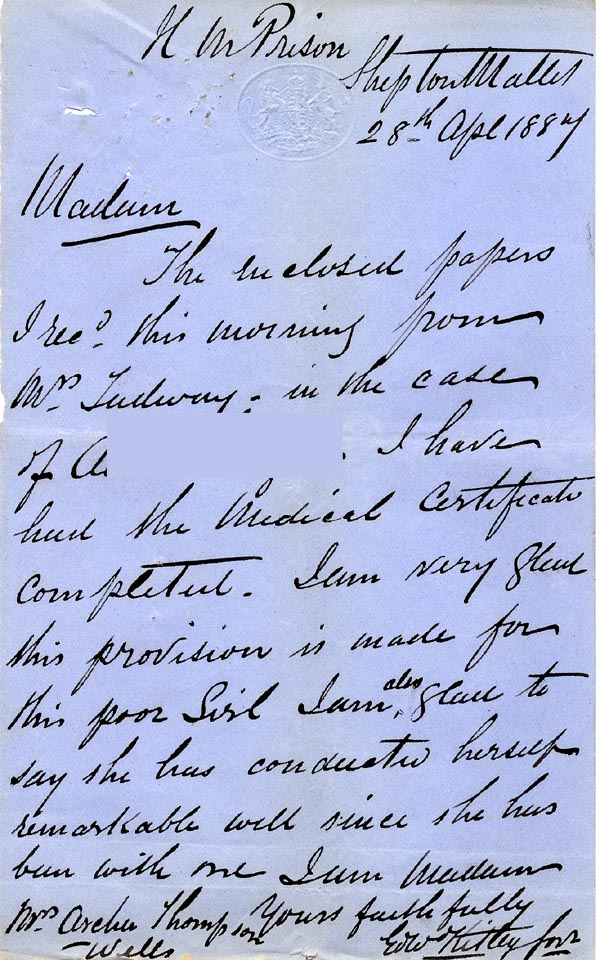 H M Prison
Shepton Mallet
28th Apl 1884
Madam
The enclosed papers
I recd. this morning from
Mrs Tudway - in the case
of A. I have
had the Medical Certificate
completed. I am very glad
this provision is made for
this poor Girl I am also glad to
say she has conducted herself
remarkable well since she has
been with me I am Madam
Yours faithfully
Mrs Archer Thompson
Wells
Edwd Kitley Govr